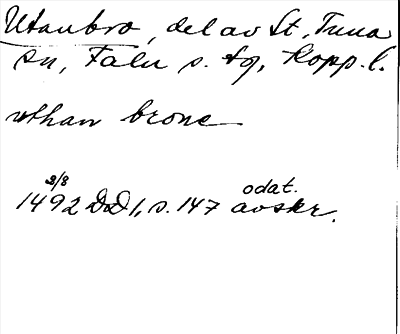 Utanbro, del av St. Tuna
sn, Falu s. tg, Kopp. l.
uthan brone
9/8 odat.
1492 DD 1, s. 147 avskr.